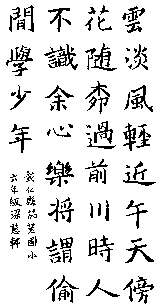 雲淡風輕近午天傍
花随栁過前川時人
不識余心樂将謂偷
間學少年
彰化縣國小
六年級